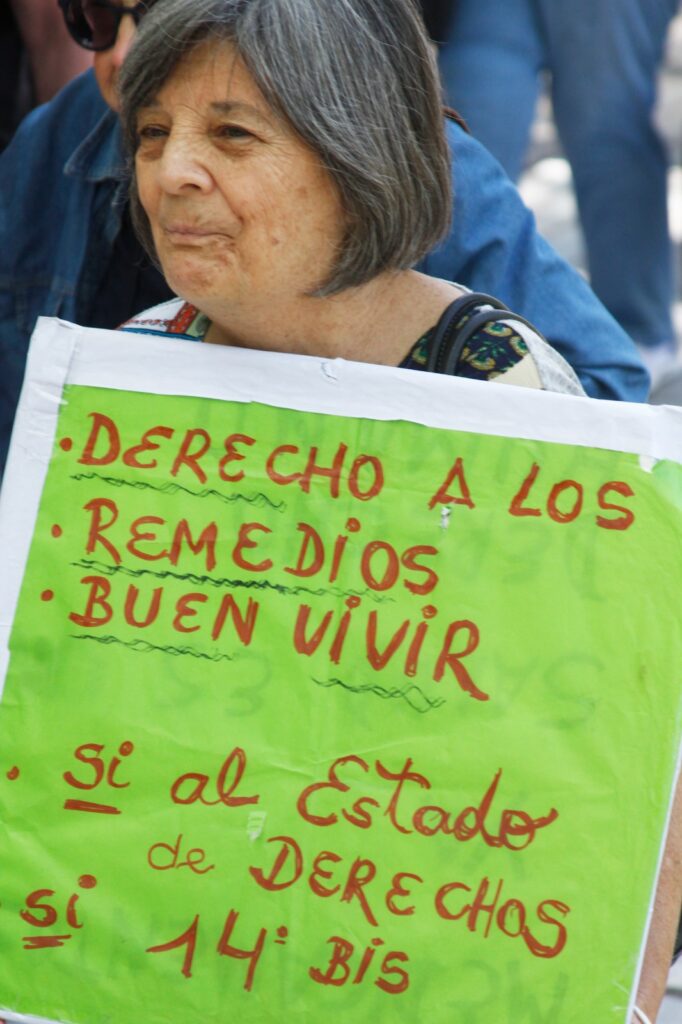 · DERECHO A LOS
· REMEDIOS
· BUEN ViViR
· Si al Estado
de DERECHOS
· si 14: Bis